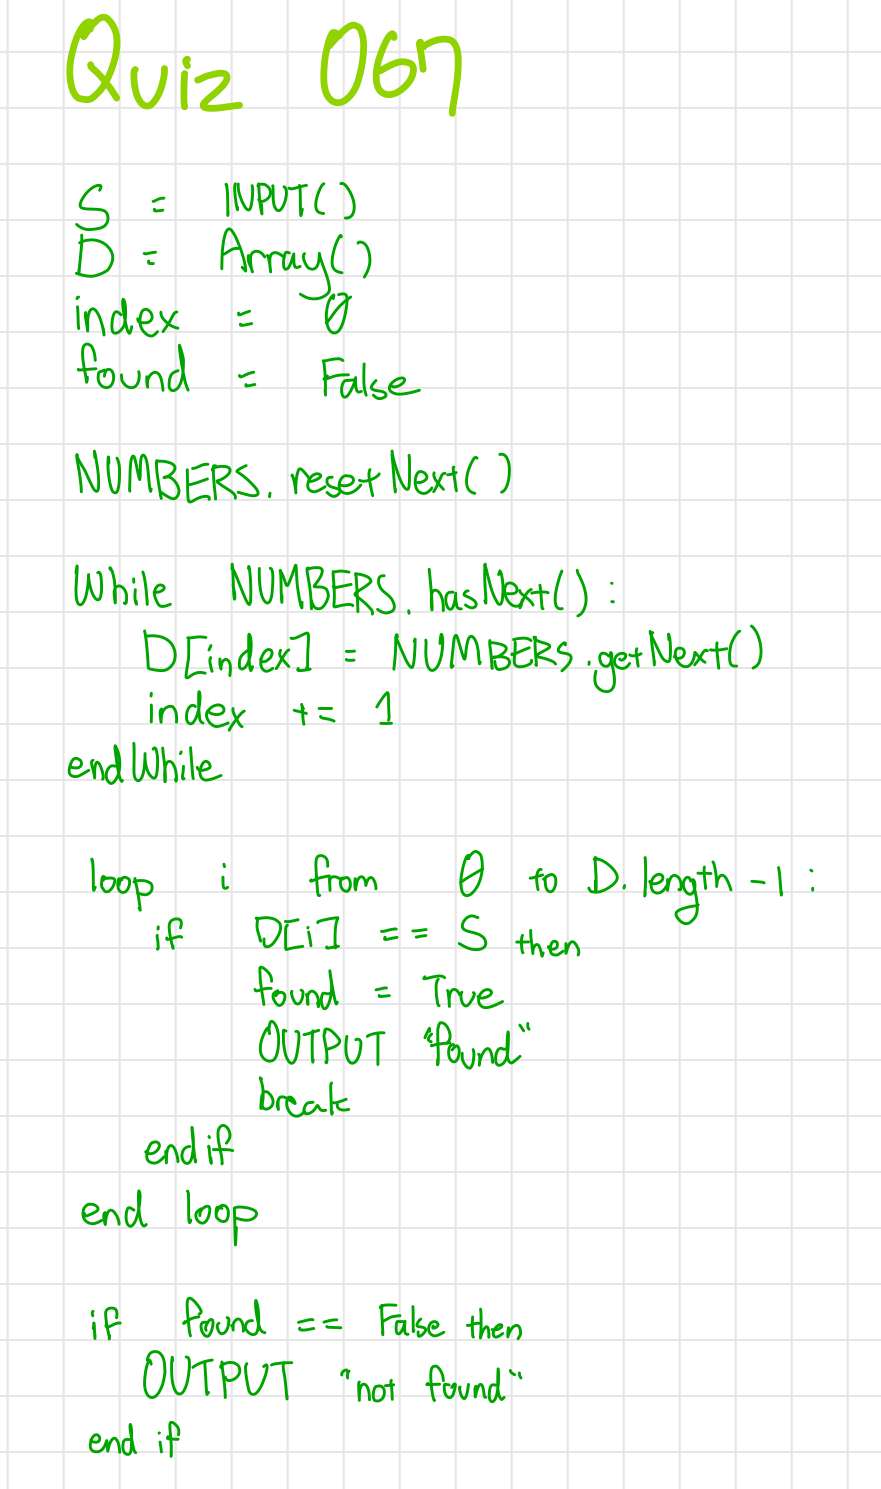 Quiz 067
S = INPUT()
D = Array()
index = 0
found = False
NUMBERS.resetNext()
While NUMBERS.hasNext():
D[index] = NUMBERS.getNext()
index += 1
endWhile
loop i from 0 to D.length-1:
if D[i] == S then
found = True
OUTPUT "found"
break
endif
end loop
if found == False then
OUTPUT "not found"
end if